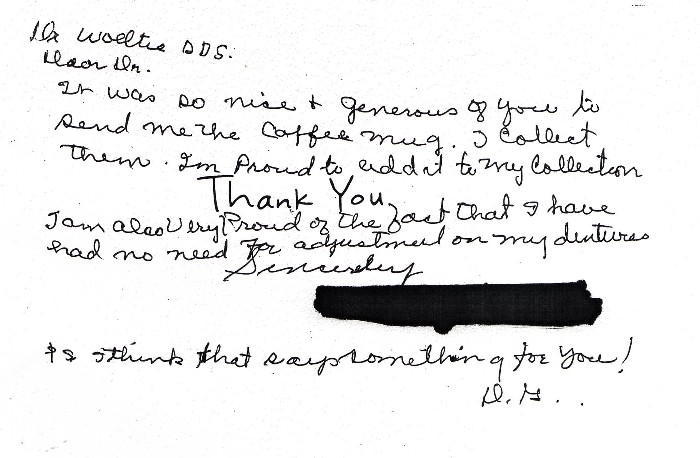 Dr Woeltie DDS.
Dear Dr.
It was so nice + generous of you to
send me the Coffee mug. I Collect
them. Im Proud to add it to my Collection
Thank You
I am also Very Proud of the fact that I have
had no need For adjustment on my dentures
Sincerely
PS I think that says something for You!
D. G.